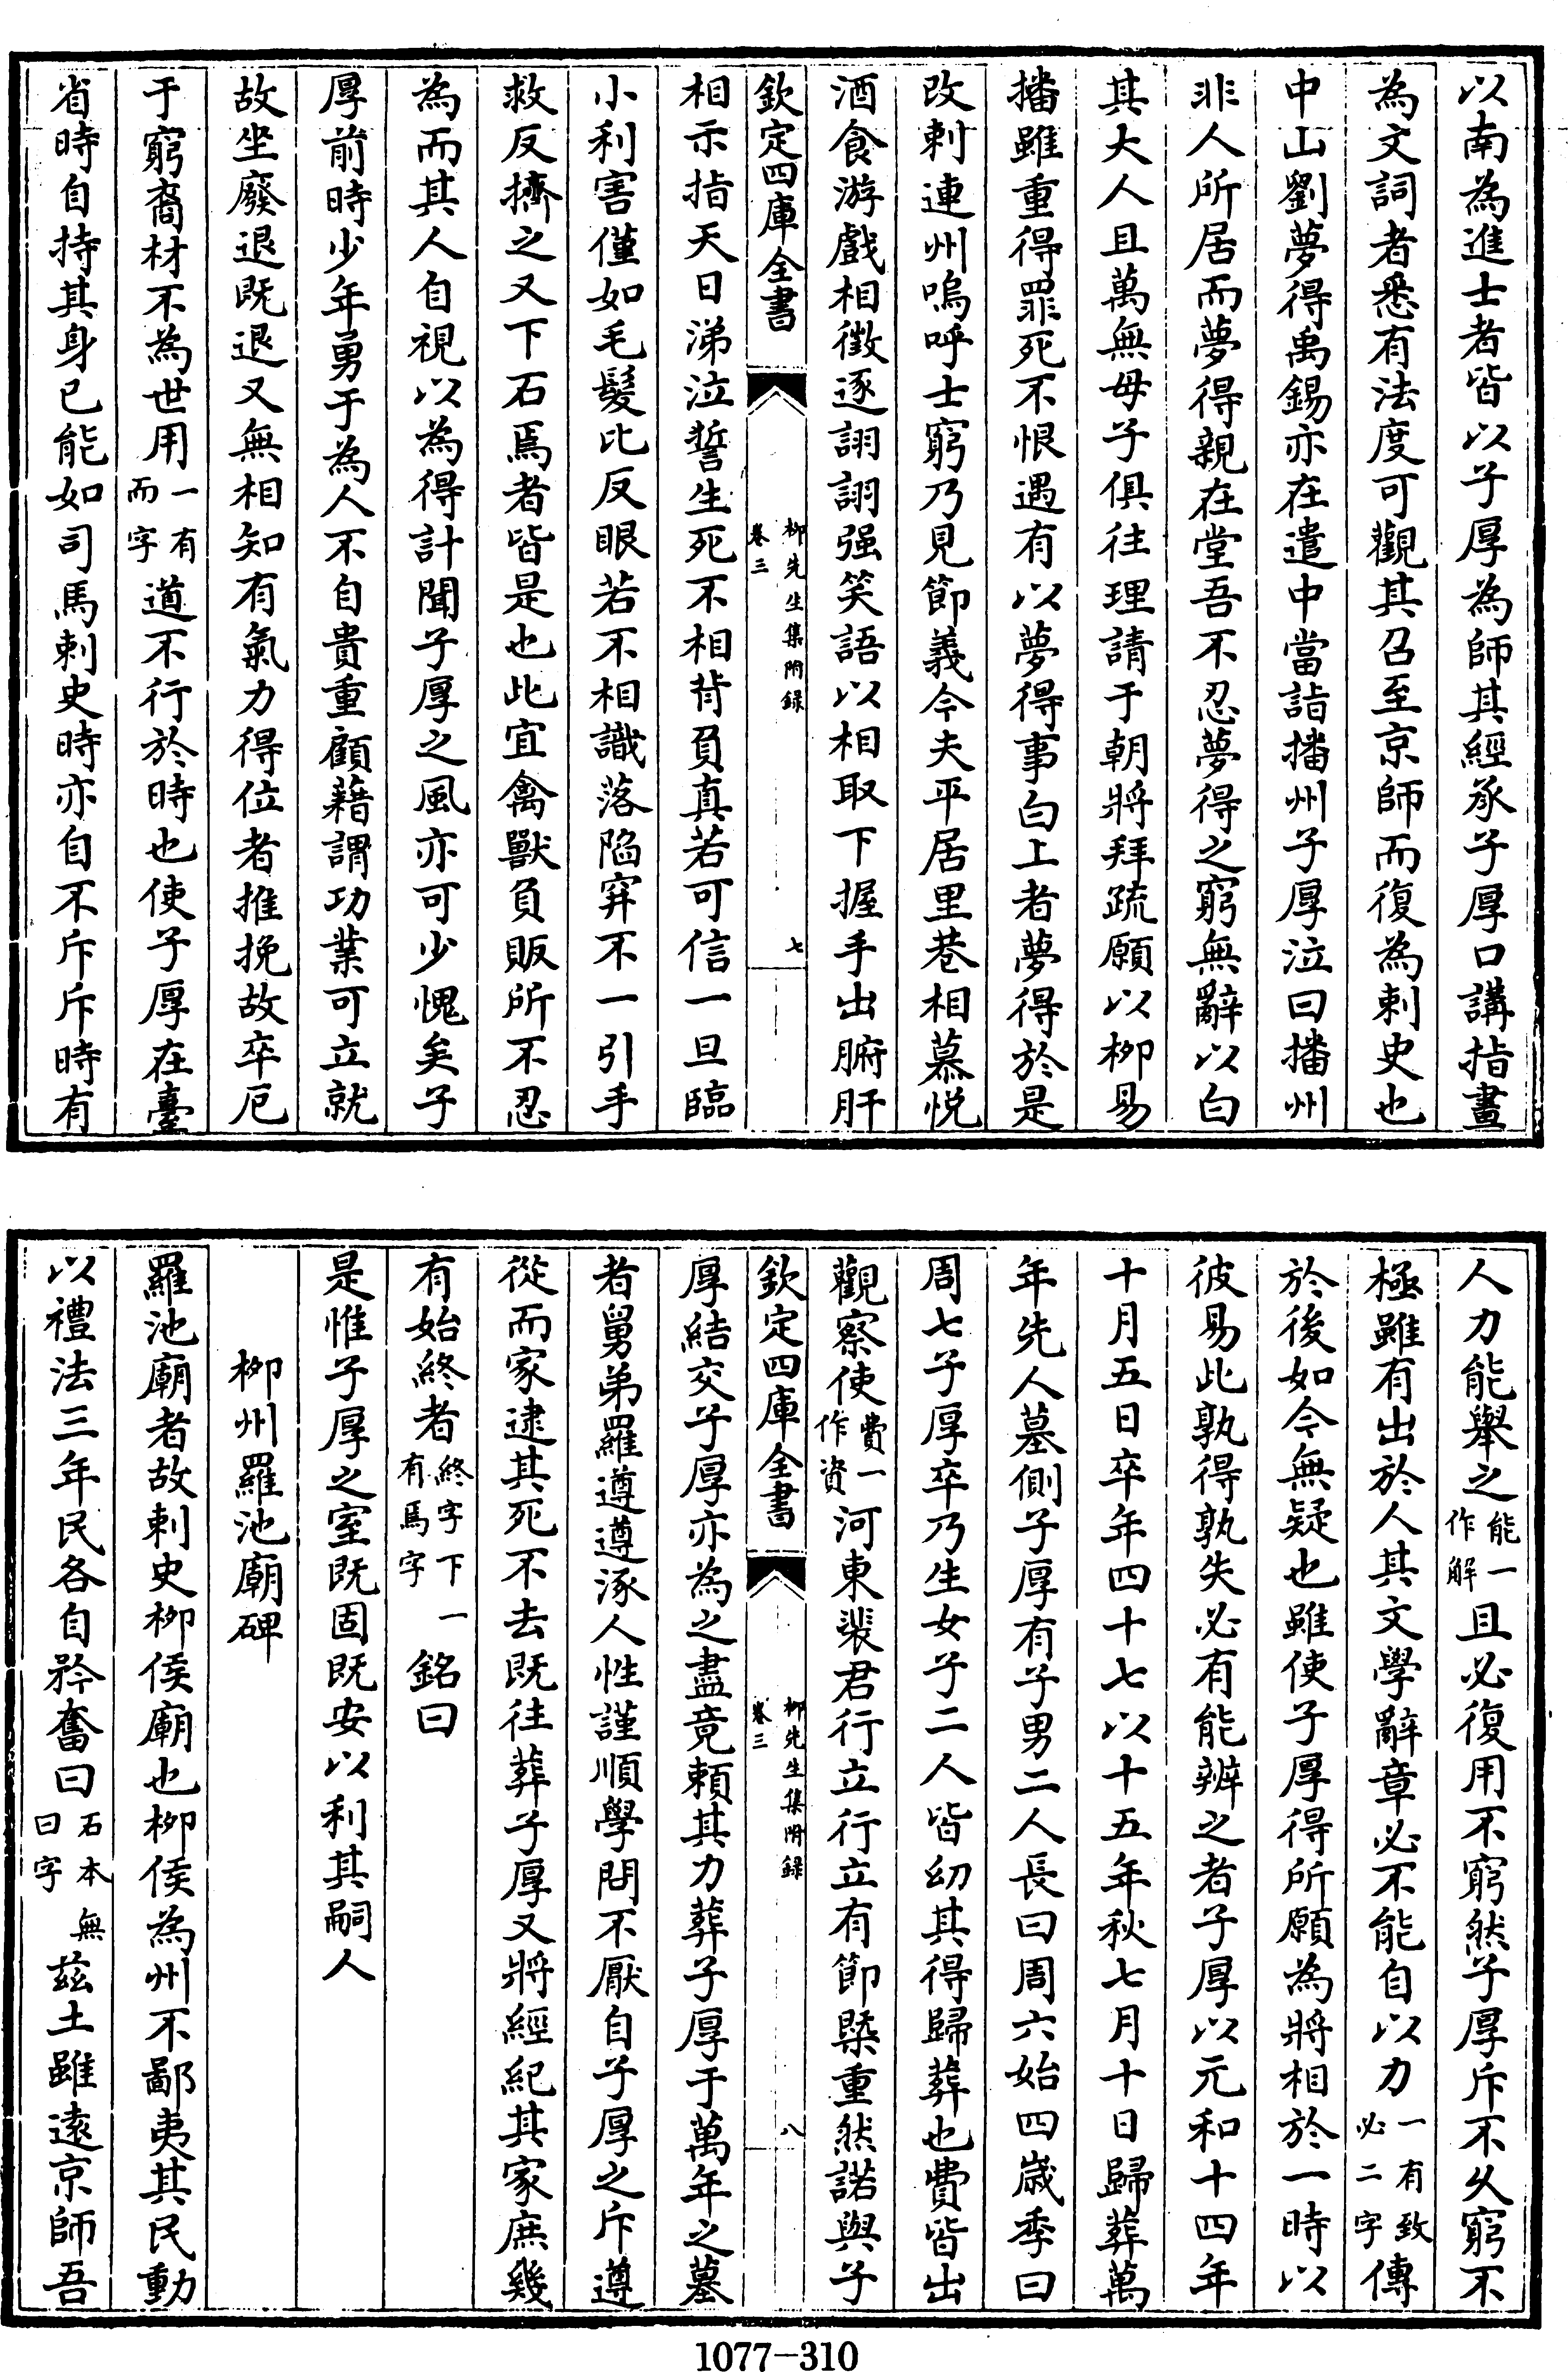 以南為進士者皆以子厚為師其經承子厚口講指畫
為文詞者悉有法度可觀其召至京師而復為刺史也
中山劉夢得禹錫亦在遣中當詣播州子厚泣曰播州
非人所居而夢得親在堂吾不忍夢得之窮無辭以白
其大人且萬無母子俱往理請于朝將拜疏願以柳易
播雖重得罪死不恨遇有以夢得事白上者夢得於是
改刺連州嗚呼士窮乃見節義今夫平居里巷相慕悅
酒食游戲相徵逐詡詡强笑語以相取下握手出腑肝
欽定四庫全書
柳先生集附録
卷三
七
相示指天日涕泣誓生死不相背負真若可信一旦臨
小利害僅如毛髮比反眼若不相識落陷穽不一引手
救反擠之又下石焉者皆是也此宜禽獸負販所不忍
為而其人自視以為得計聞子厚之風亦可少愧矣子
厚前時少年勇于為人不自貴重顧藉謂功業可立就
故坐廢退既退又無相知有氣力得位者推挽故卒厄
于窮裔材不為世用一有而字道不行於時也使子厚在臺
省時自持其身已能如司馬刺史時亦自不斥斥時有
人力能舉之能一作解且必復用不窮然子厚斥不久窮不
極雖有出於人其文學辭章必不能自以力一有致必二字傳
於後如今無疑也雖使子厚得所願為將相於一時以
彼易此孰得孰失必有能辨之者子厚以元和十四年
十月五日卒年四十七以十五年秋七月十日歸葬萬
年先人墓側子厚有子男二人長曰周六始四歲季曰
周七子厚卒乃生女子二人皆幼其得歸葬也費皆出
觀察使費一作資河東裴君行立行立有節槩重然諾與子
欽定四庫全書
柳先生集附録
卷三
八
厚結交子厚亦為之盡竟賴其力葬子厚于萬年之墓
者舅弟羅遵遵涿人性謹順學問不厭自子厚之斥遵
從而家逮其死不去既往葬子厚又將經紀其家庶幾
有始終者終字下一有焉字銘曰
是惟子厚之室既固既安以利其嗣人
柳州羅池廟碑
羅池廟者故刺史柳侯廟也柳侯為州不鄙夷其民動
以禮法三年民各自矜奮曰石本無曰字茲土雖遠京師吾
1077-310